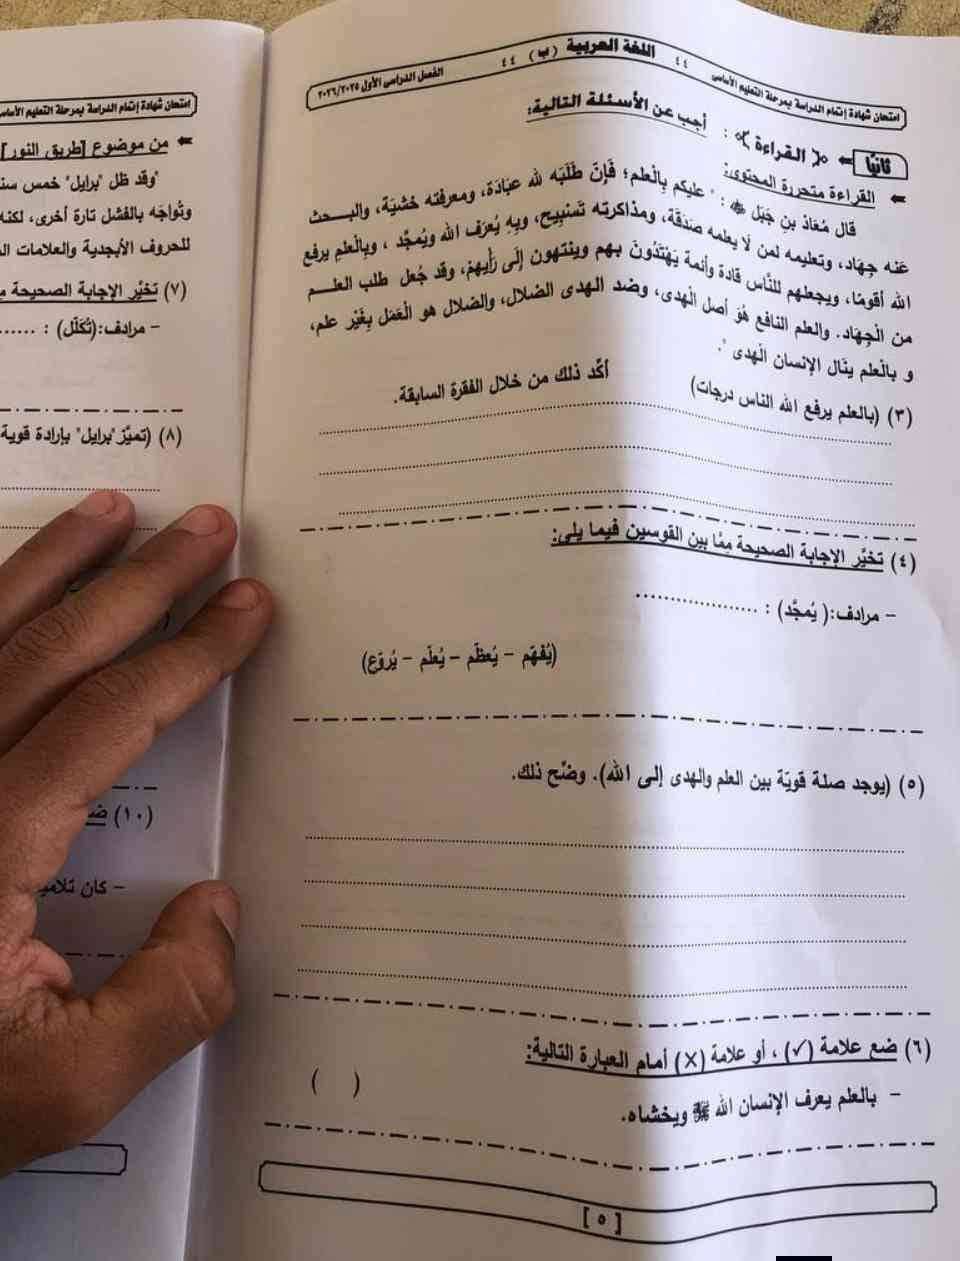 امتحان شهادة إتمام الدراسة بمرحلة التعليم الأساسى ٤٤ اللغة العربية (ب) ٤٤ الفصل الدراسى الأول ٢٠٢٦/٢٠٢٥
ثانيًا القراءة : أجب عن الأسئلة التالية:
القراءة متحررة المحتوى:
قال مُعَاذ بن جَبَل : " عليكم بِالْعلم؛ فَإِنّ طَلَبَه لله عبَادَة، ومعرفته خشيَة، والبـــحث
عَنه جِهَاد، وتعليمه لمن لَا يعلمه صَدَقَة، ومذاكرته تَسْبِيح، وبِه يُعرَف الله ويُمجَّد ، وبِالْعلمِ يرفع
الله أقومًا، ويجعلهم للنَّاس قادة وأئمة يَهْتَدُونَ بهم وينتهون إِلَى رَأْيِهِمْ، وقد جُعل طلب العلـــم
من الْجِهَاد. والعلم النافع هُوَ أصل الْهدى، وضد الهدى الضلال، والضلال هو الْعَمَل بِغَيْر علم،
و بِالْعلم ينَال الإنسان الْهدى ".
(٣) (بالعلم يرفع الله الناس درجات) أكّد ذلك من خلال الفقرة السابقة.
(٤) تخيَّر الإجابة الصحيحة ممّا بين القوسين فيما يلى:
– مرادف:( يُمجَّد) : ................
(يُفهَم – يُعظَّم – يُعلَّم – يُروَّع)
(٥) (يوجد صلة قويّة بين العلم والهدى إلى الله). وضّح ذلك.
(٦) ضع علامة (✓) ، أو علامة (✗) أمام العبارة التالية:
– بالعلم يعرف الإنسان الله ﷻ ويخشاه. ( )
[ ٥ ]
امتحان شهادة إتمام الدراسة بمرحلة التعليم الأساسى
من موضوع [طريق النور]
"وقد ظل "برايل" خمس
وتُواجَه بالفشل تارة أخرى، لكنه
للحروف الأبجدية والعلامات
(٧) تخيَّر الإجابة الصحيحة
– مرادف:(تُكَلّل) : ......
(٨) (تميَّز "برايل" بإرادة قوية
(١٠)
– كان